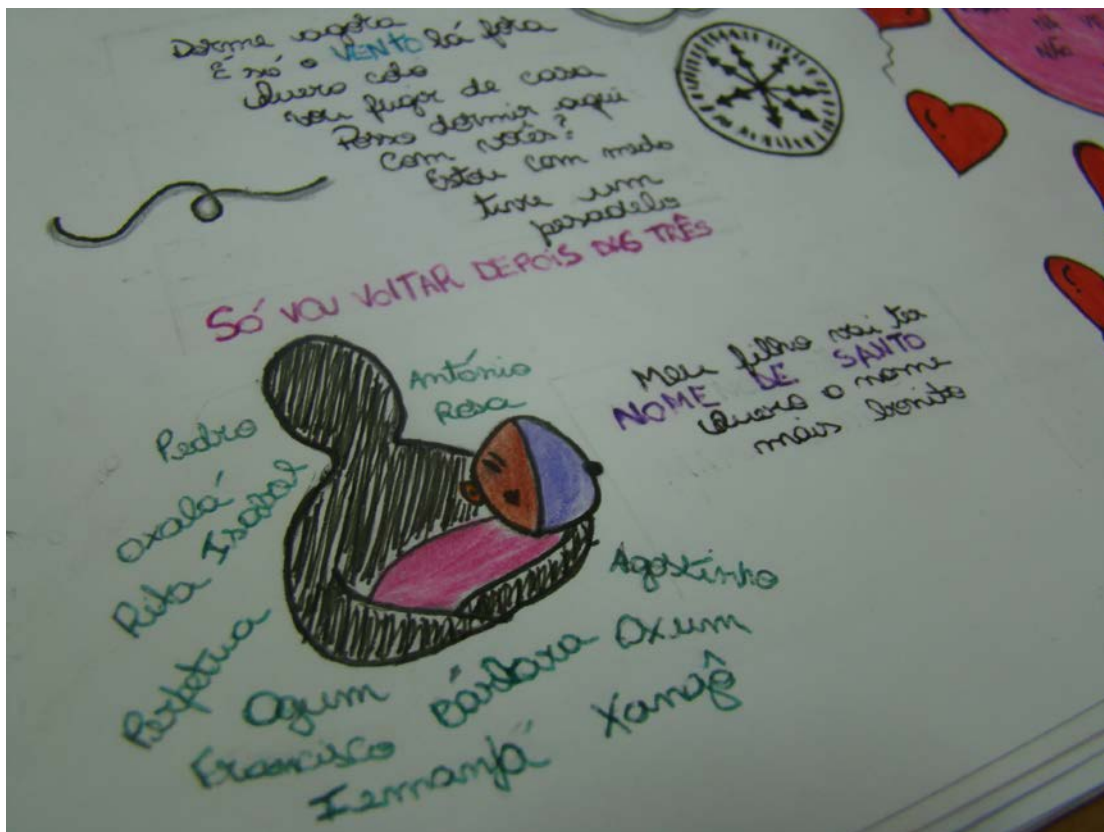 Dorme agora
É só o VENTO lá fora
Quero colo
vou fugir de casa
Posso dormir aqui
com vocês?
Estou com medo
tive um
pesadelo
SÓ VOU VOLTAR DEPOIS DAS TRÊS
Meu filho vai ter
NOME DE SANTO
Quero o nome
mais bonito
António
Rosa
Pedro
Oxalá
Rita Isabel
Perpetua
Agostinho
Ogum Bárbara Oxum
Francisco
Iemanjá Xangô
NÃO